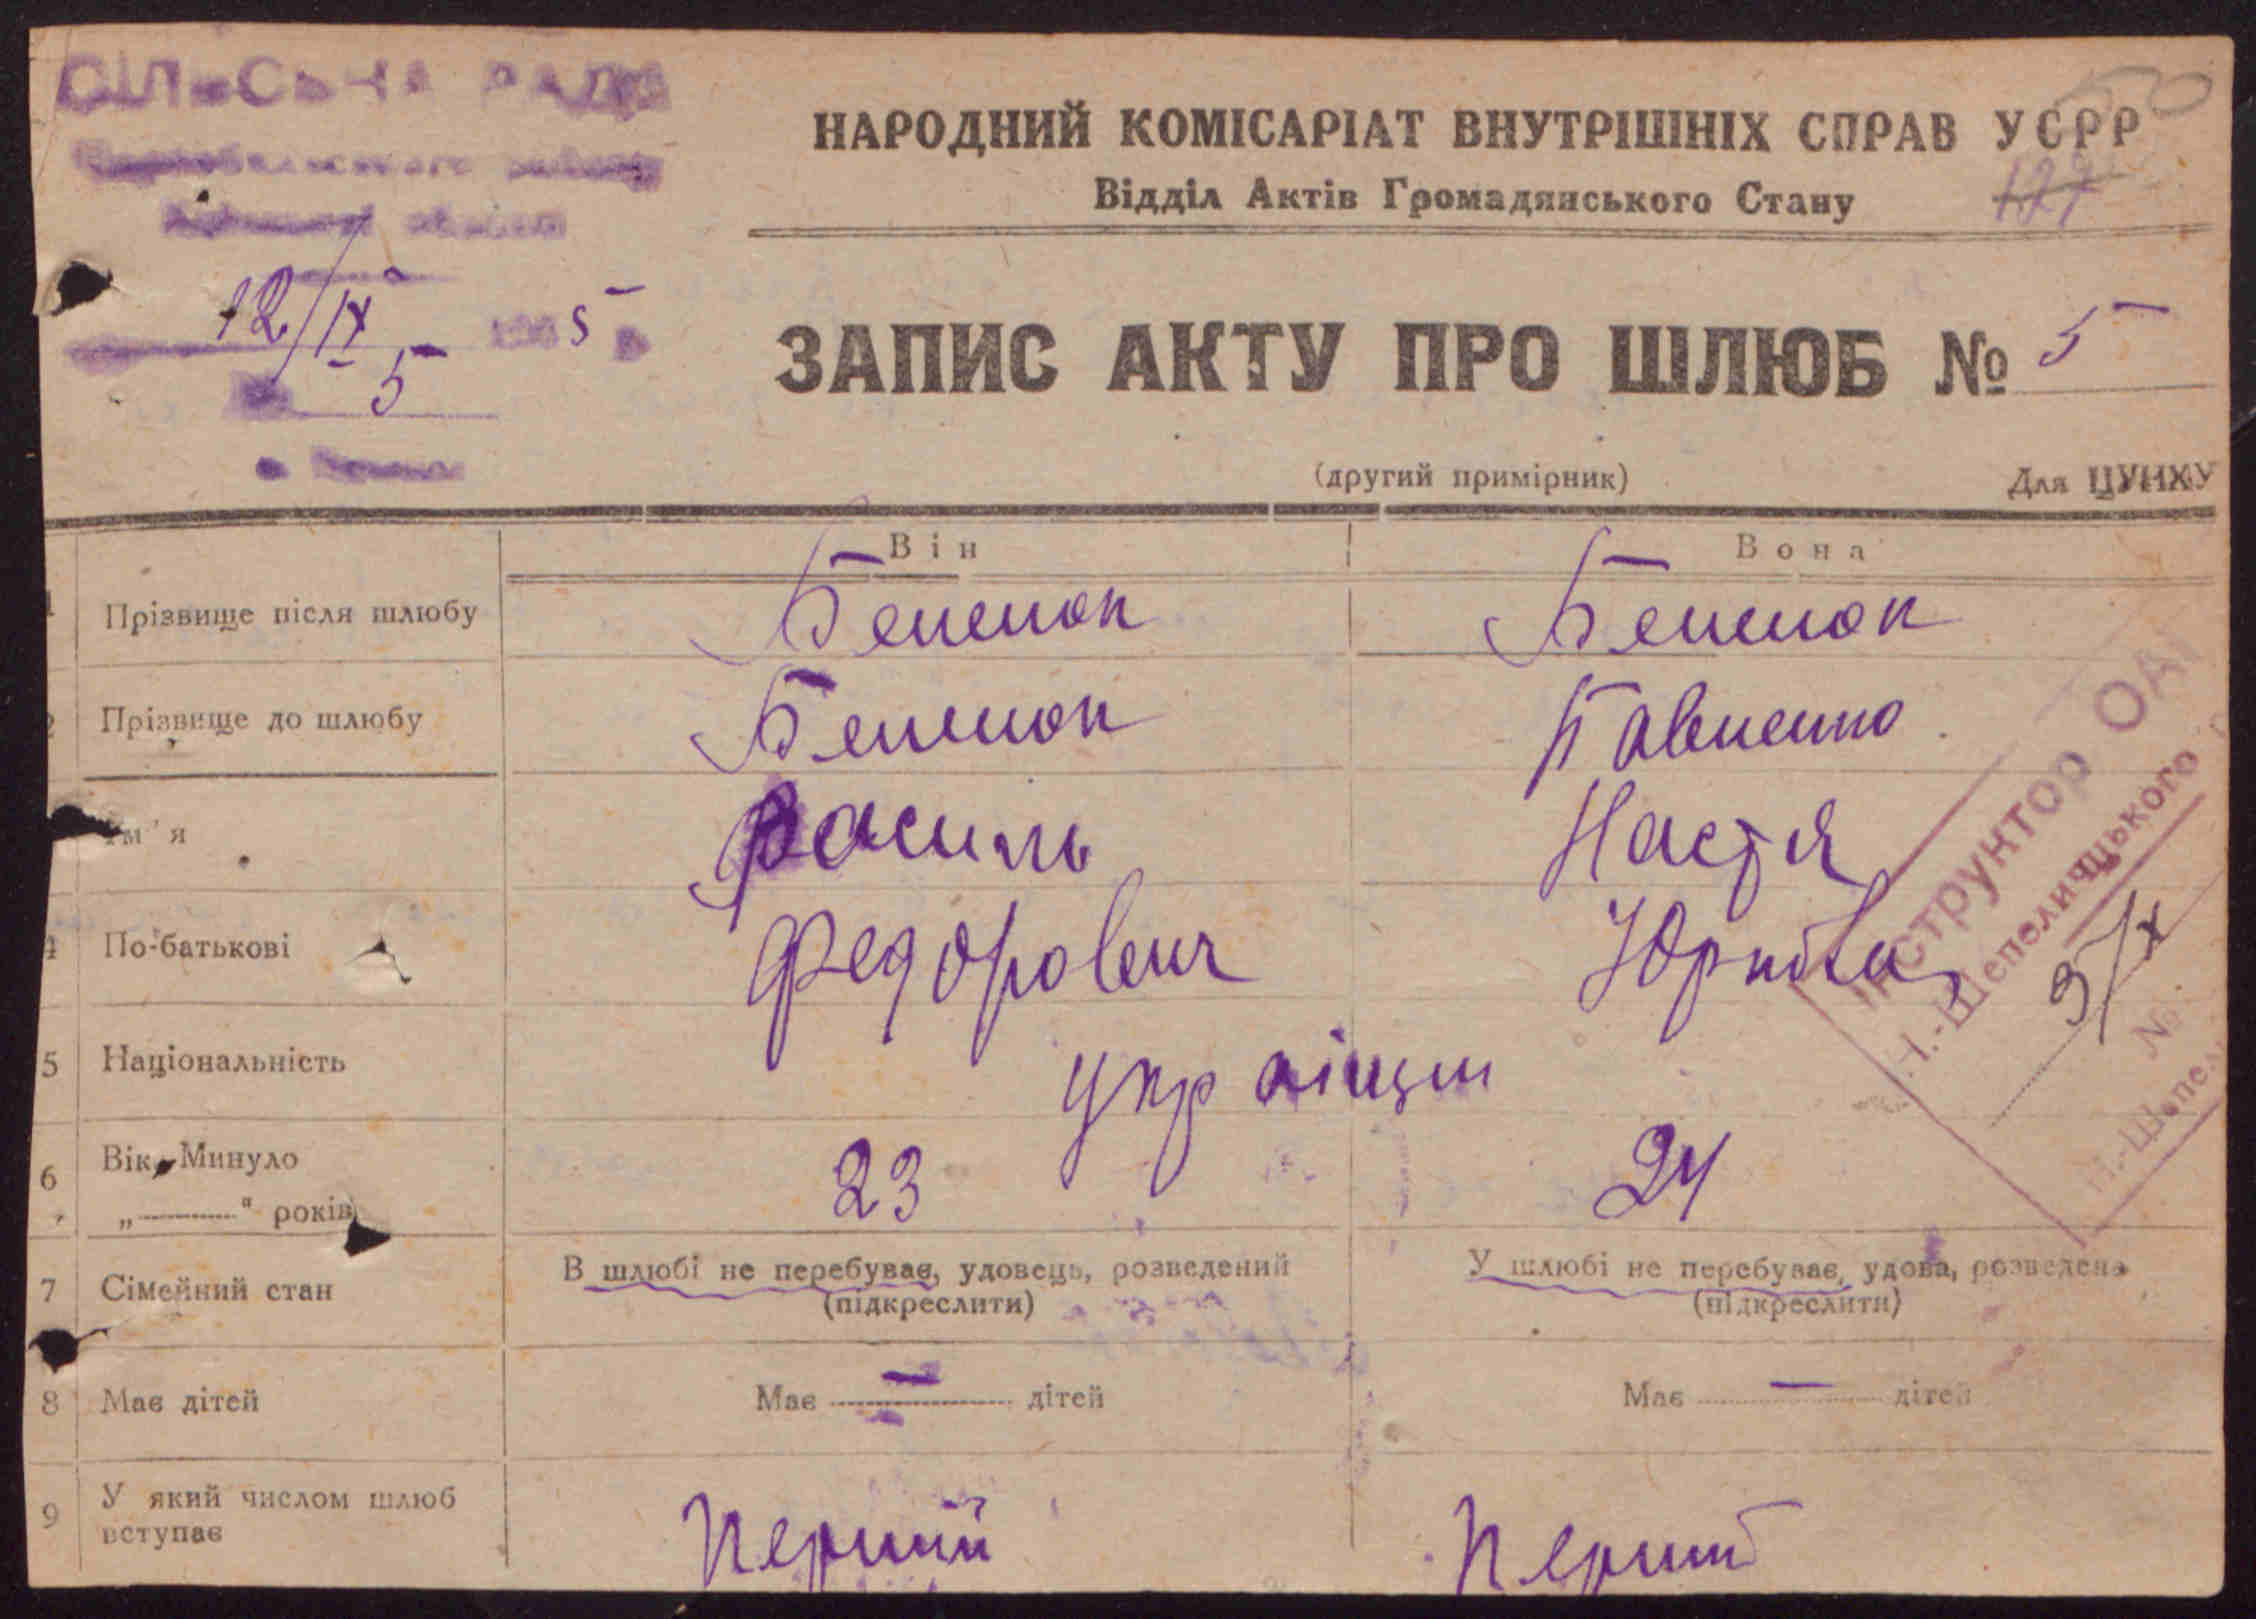 СІЛЬСЬКА РАДА
50
НАРОДНИЙ КОМІСАРІАТ ВНУТРІШНІХ СПРАВ УСРР
Відділ Актів Громадянського Стану
127
12/IX 1935 р.
№ 5
ЗАПИС АКТУ ПРО ШЛЮБ № 5
(другий примірник) Для ЦУНХУ
Він Вона
1 Прізвище після шлюбу
2 Прізвище до шлюбу Павненко
Ім'я Василь Настя
4 По-батькові Федорович Юрківна
5 Національність українці
6 Вік. Минуло 23 24
„———" років
7 Сімейний стан В шлюбі не перебуває, удовець, розведений У шлюбі не перебуває, удова, розведена
(підкреслити) (підкреслити)
8 Має дітей Має — дітей Має — дітей
9 У який числом шлюб вступає Перший Перший
Інструктор ОАГ
Н.-Шепелицького
9/X
№
Н.-Шепел